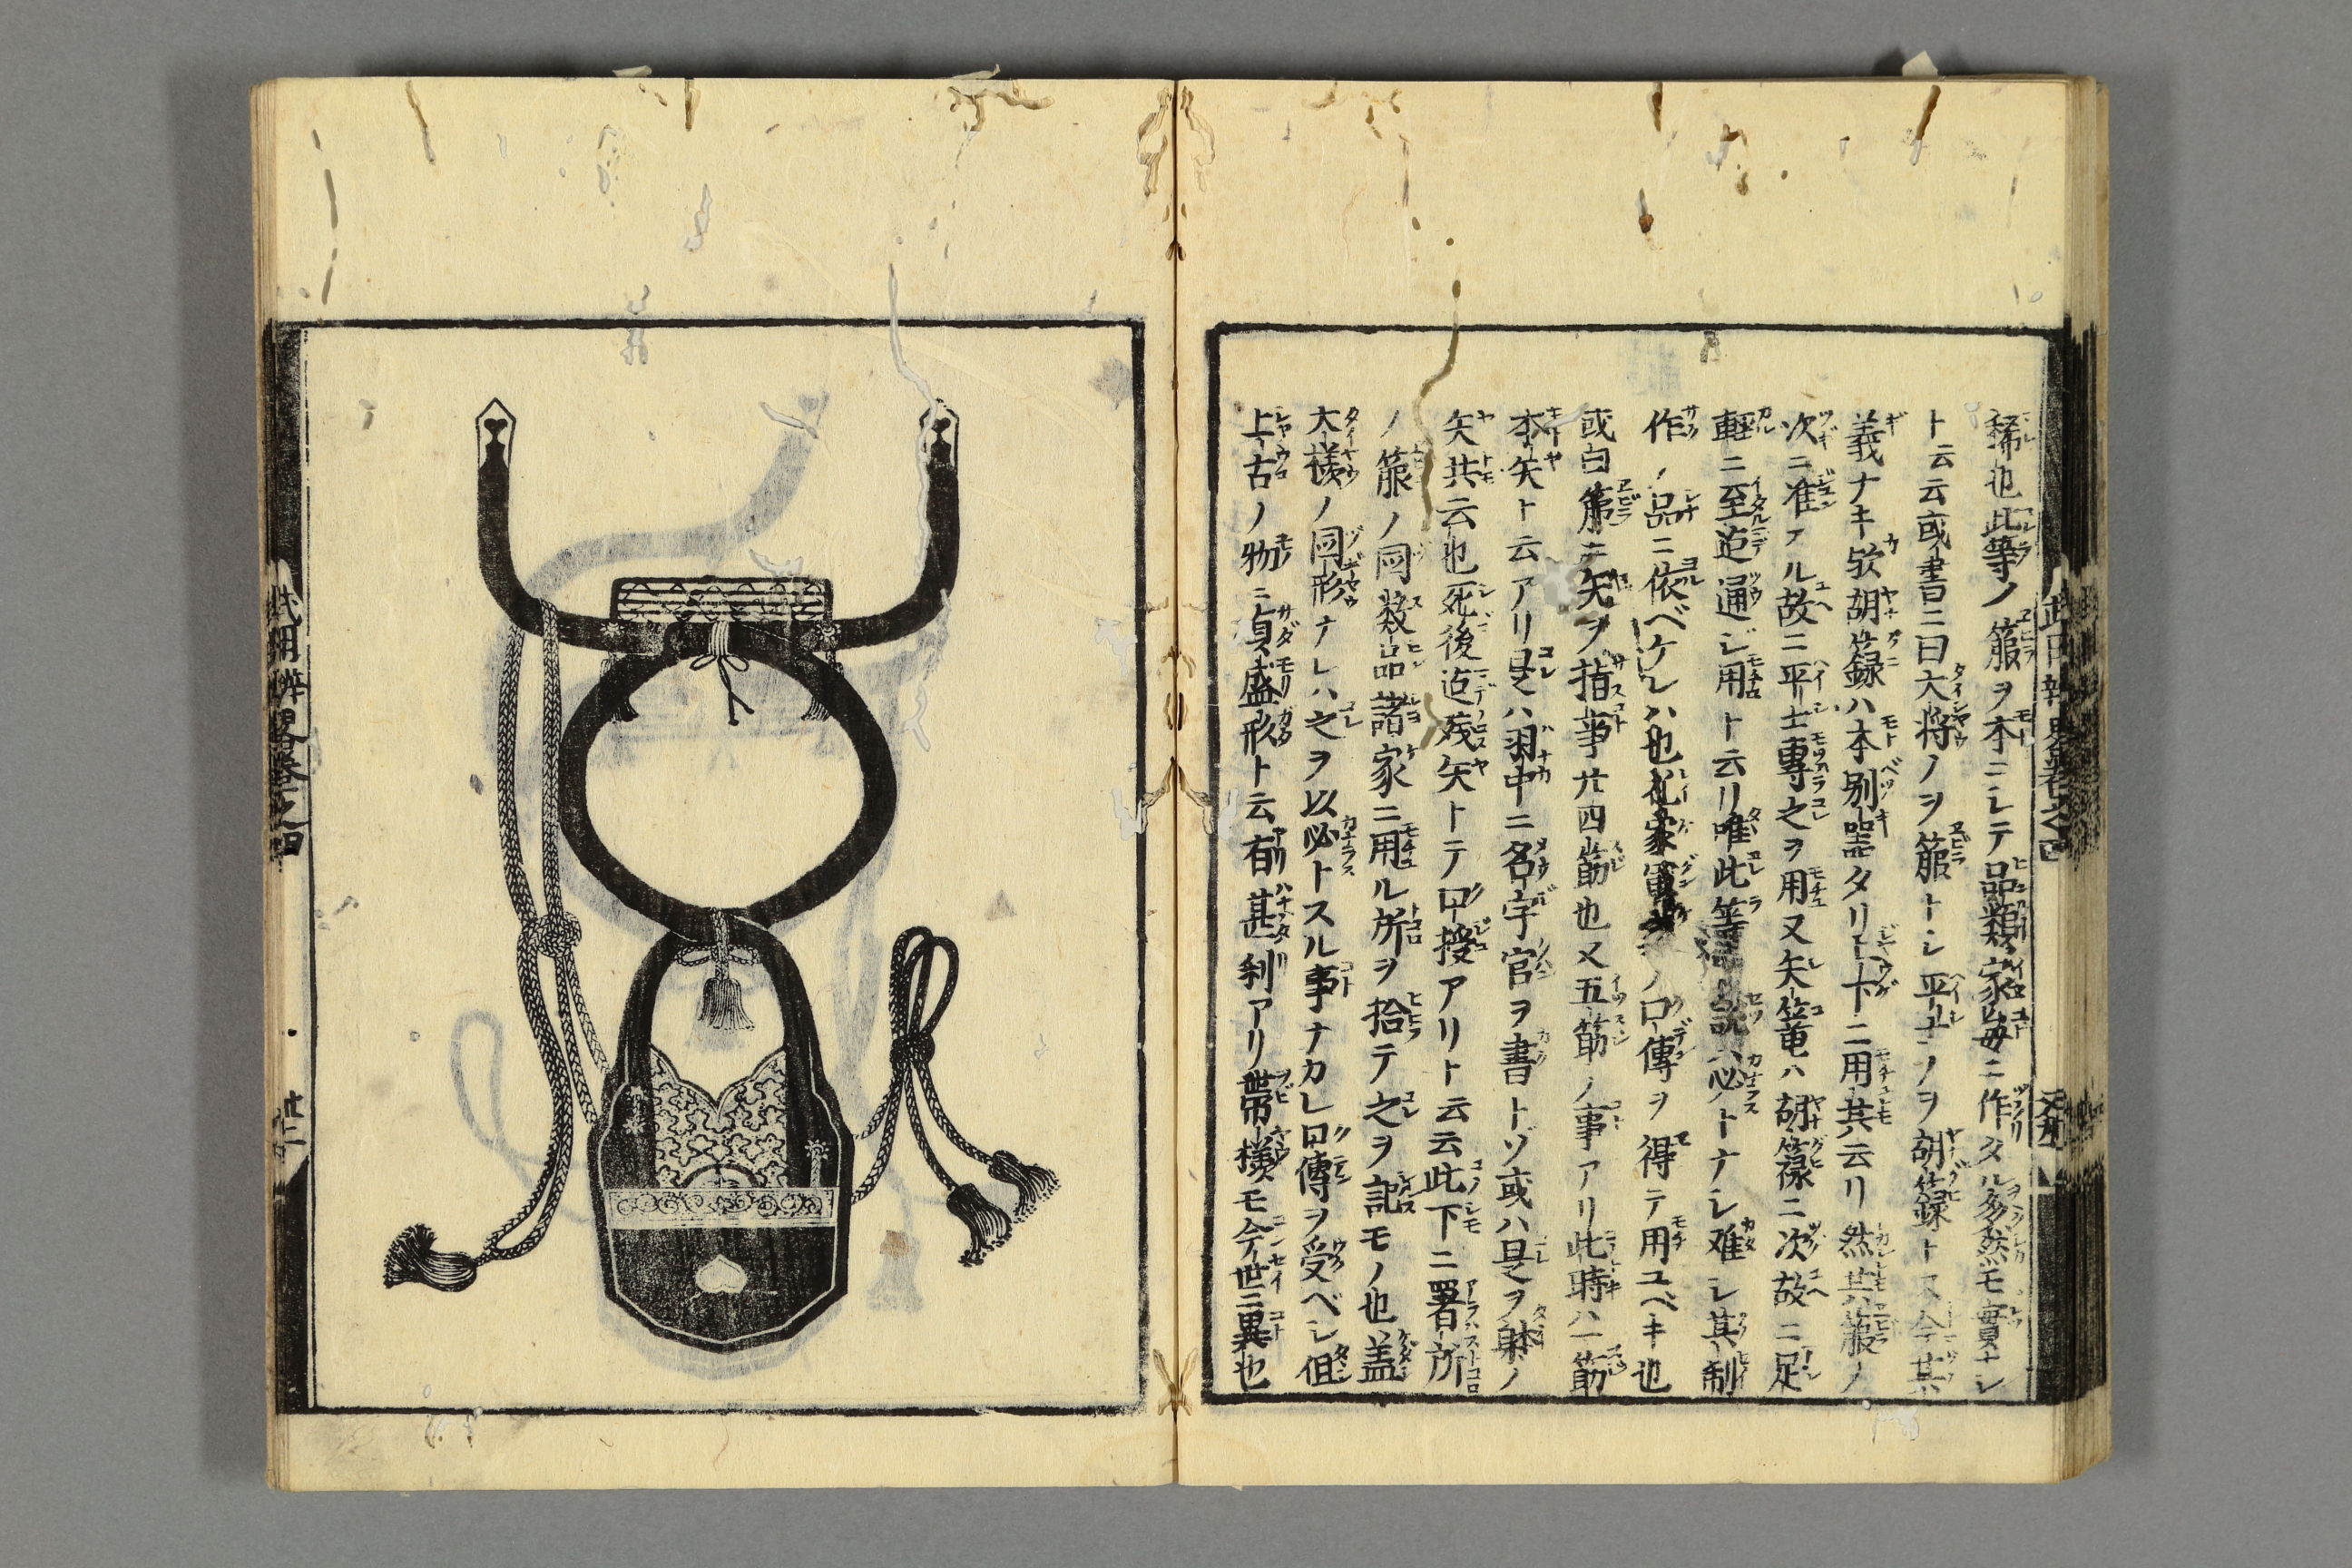 稀也此等ノ箙ヲ本ニシテ品類家毎ニ作タル多然モ實ナシ
ト云云或書ニ曰大将ノヲ箙トシ平士ノヲ胡籙ト又今其
義ナキ欤胡籙ハ本別噐タリ上下ニ用共云リ然共箙ノ
次ニ准アル故ニ平士專之ヲ用又矢篭ハ胡籙ニ次故ニ足
軽ニ至迠通シ用ト云リ唯此等説ハ必トナシ难シ其制
作ノ品ニ依ベケレハ也礼家軍ノ口傳ヲ得テ用ユベキ也
或白箙ニ矢ヲ指事廿四筋也又五筋ノ事アリ此時ハ一筋
本矢ト云アリ是ハ羽中ニ名字官ヲ書トゾ或ハ是ヲ躰ノ
矢共云也死後迠残矢トテ口授アリト云云此下ニ署所
ノ箙ノ図数品諸家ニ用ル所ヲ拾テ之ヲ記モノ也盖
大様ノ図形ナレハ之ヲ以必トスル事ナカレ口傳ヲ受ベシ但
上古ノ物ニ貞盛形ト云有甚利アリ帶様モ今世ニ異也
武用辨畧巻之四